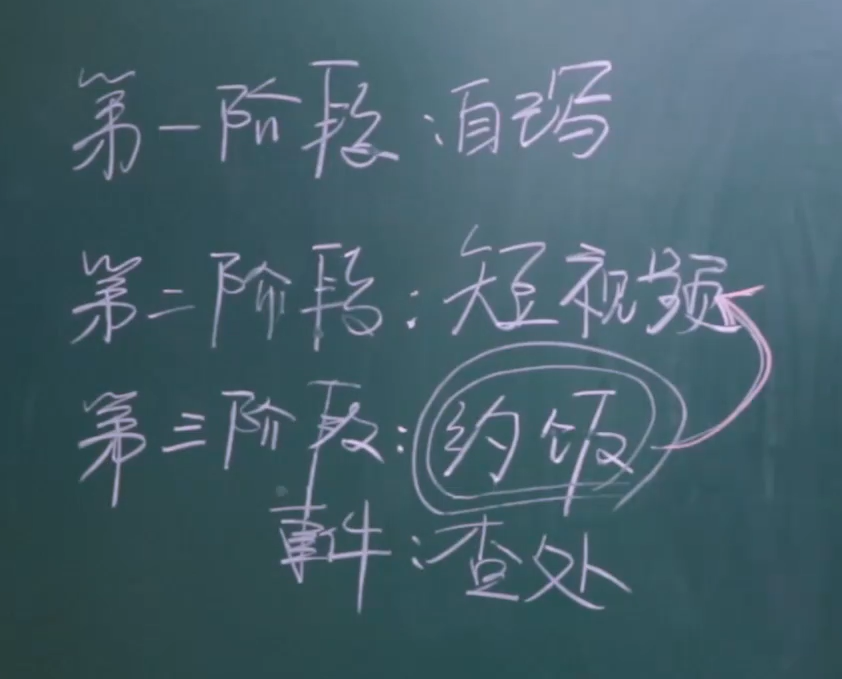 第一阶段:自瑪
第二阶段:短视频
第三阶段:约饭
事件:查处